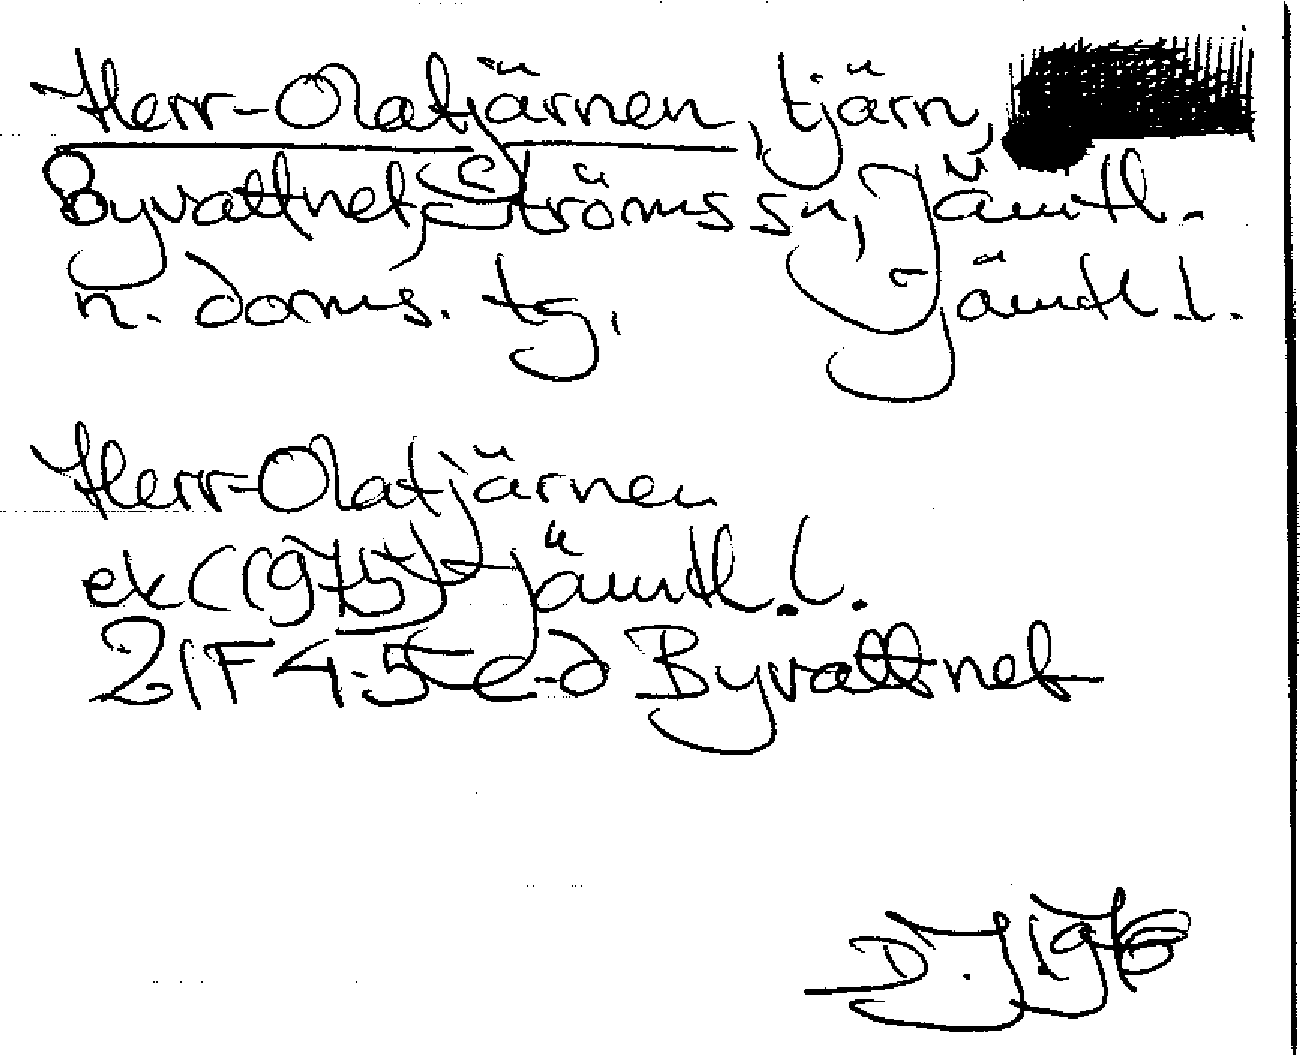 Herr-Olatjärnen, tjärn,
Byvattnet, Ströms sn, Jämtl.
n. doms. tg, Jämtl. l.
Herr-Olatjärnen
ek (1975) Jämtl. l.
21F 4-5 c-d Byvattnet
D. J. 1976